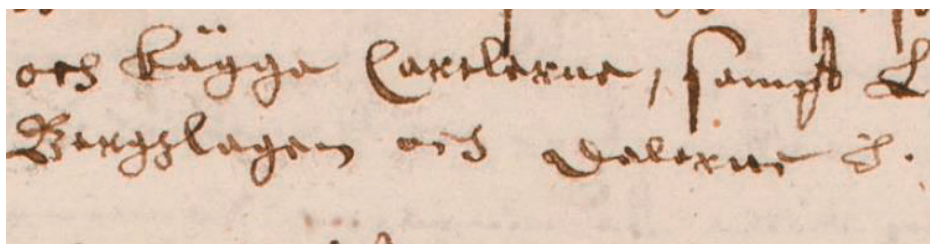 och Bägge Carelerne, sampt
Bergzlagen och Dalerne